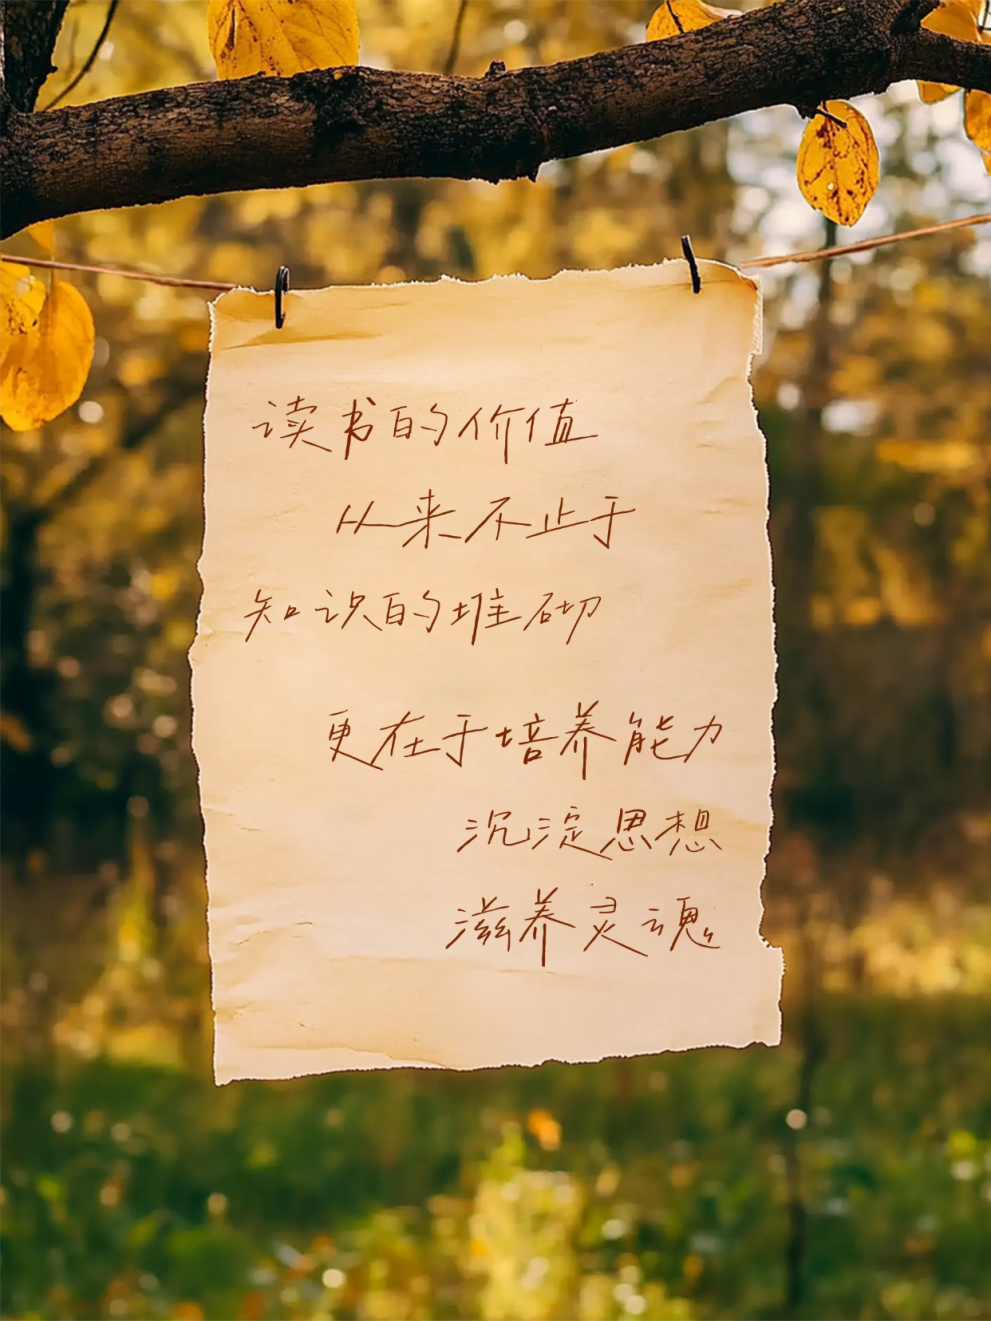 读书的价值
从来不止于
知识的堆砌
更在于培养能力
沉淀思想
滋养灵魂